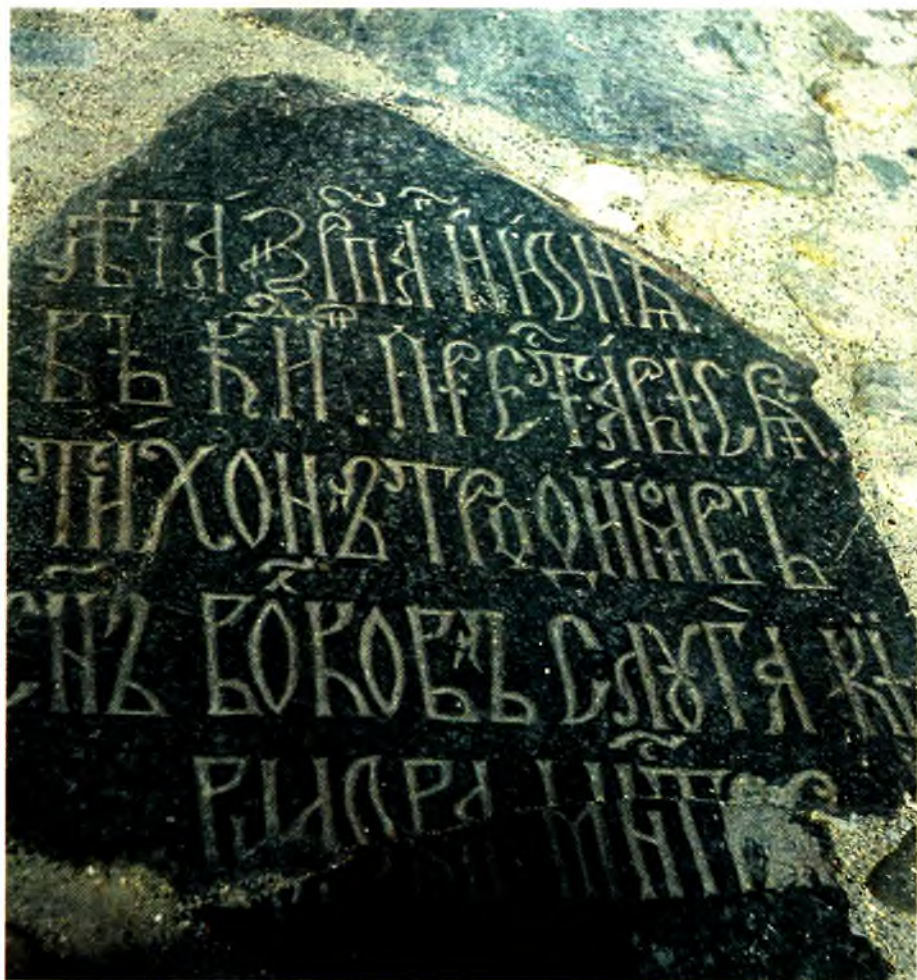 лѣта ҂зрп҃а июнѧ.
въ к҃и. преставісѧ.
тихонъ тродимовъ
сн҃ъволковъ слꙋга кі
рилова